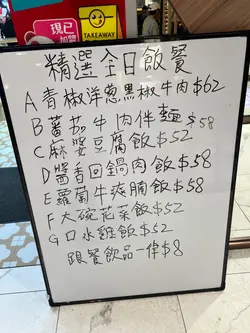 現已
TAKEAWAY
精選全日飯餐
A青椒洋葱黑椒牛肉$62
B蕃茄牛肉伴麵$58
C麻婆豆腐飯$52
D醬香回鍋肉飯$58
E蘿蔔牛爽腩飯$58
F大碗花菜飯$52
G口水雞飯$62
跟餐飲品一律$8